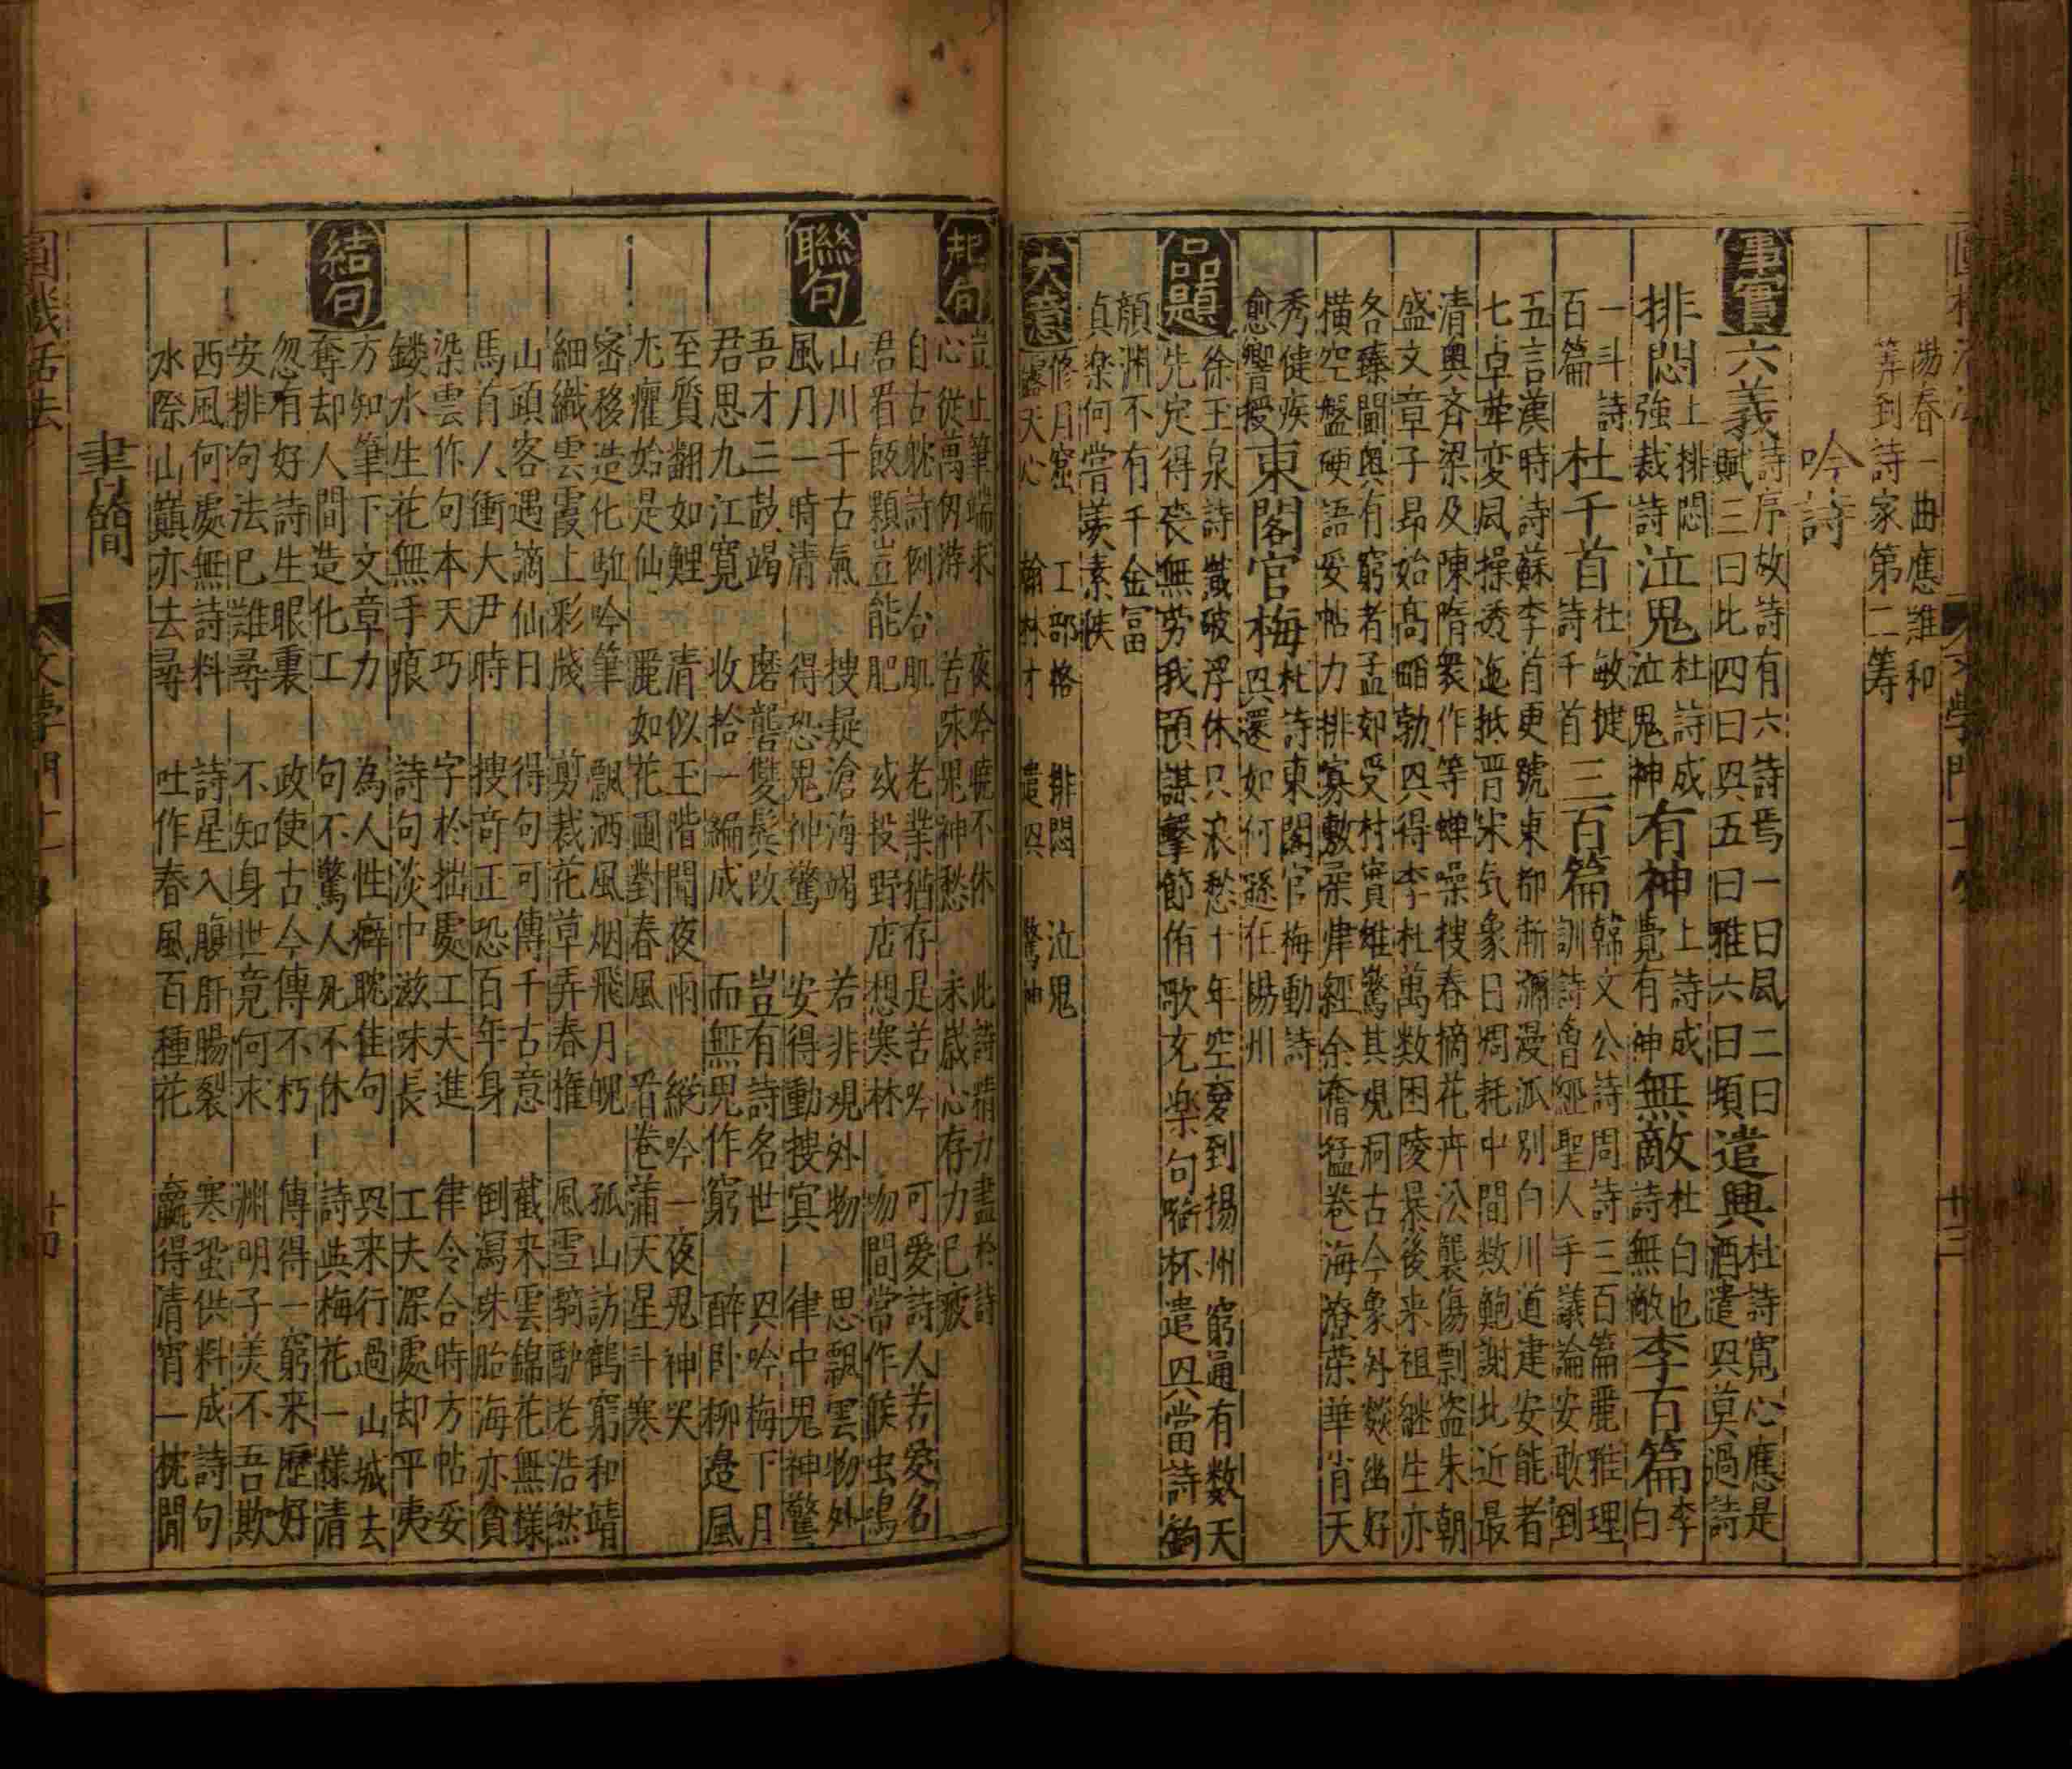 陽春一曲應難和
筭到詩家第二籌
吟詩
事實
六義
詩序故詩有六詩焉一曰風二曰
賦三曰比四曰興五曰雅六曰頌
遣興
杜詩寬心應是
酒遣興莫過詩
排悶
上排悶
強裁詩
泣鬼
杜詩成
泣鬼神
有神
上詩成
覺有神
無敵
杜白也
詩無敵
李百篇
李
白
一斗詩
百篇
杜千首
杜敏捷
詩千首
三百篇
韓文公詩周詩三百篇麗雅理
訓詩會經聖人手議論安敢到
五言漢時詩蘇李首更號東都漸瀰漫派別白川道建安能者
七卓犖変風操透迤抵晋宋気象日凋耗中間数鮑謝比近最
清奥斉梁及陳隋衆作等蝉噪搜春摘花卉㳂襲傷剽盗朱朝
盛文章子昂始髙蹈勃興得李杜萬数困陵暴後来祖継生亦
各臻閫奥有窮者孟郊受材實雄驁其覌洞古今象外燚幽好
横空盤硬語妥帖力排奡敷柔肆経余奮猛卷海潦荣華肖天
秀健疾
愈響授
東閣官梅
杜詩東閣官梅動詩
興還如何遜在楊州
品題
徐玉泉詩識破浮休只衣愁十年空夏到揚州窮通有数天
先定得丧無労我預謀擊節侑歌充楽句啣杯遣興當詩鉤
顔渊不有千金冨
貞楽何嘗羨素侯
大意
修月窟
露天心
工部格
翰林才
排悶
遣興
泣鬼
驚神
起句
豈止筆端求
心従萬仭游
夜吟暁不休
苦味鬼神愁
此詩精力盡於詩
未歳心存力已疲
自古躭詩例合肌
君看飯顆豈能肥
老業猶存是苦吟
或投野店想寒林
可愛詩人若愛名
吻間常作候虫鳴
聮句
山川千古氣
風月一時清
搜疑滄海竭
得恐鬼神驚
若非覌外物
安得動搜冥
思飄雲物外
律中鬼神驚
吾才三鼓竭
君思九江寛
磨礱雙鬂改
收拾一編成
豈有詩名世
而無鬼作窮
興吟梅下月
醉卧柳邉風
至質翻如鯉
尤癯始是仙
清似玉階閒夜雨
麗如花圃對春風
縦吟一夜鬼神哭
看巻蒲天星斗寒
宻移造化歸吟筆
細織雲霞上彩牋
飘洒風烟飛月魄
剪裁花草弄春権
孤山訪鶴窮和靖
風雪騎馿老浩然
山頭客遇謫仙日
馬首人衝大尹時
得句可傳千古意
搜竒正恐百年身
截来雲錦花無様
倒瀉珠胎海亦貪
染雲作句本天巧
鏤水生花無手痕
字於拙處工夫進
詩句淡中滋味長
律令合時方帖妥
工夫深處却平夷
結句
方知筆下文章力
奪却人間造化工
為人性癖耽佳句
句不驚人死不休
興来行過山城去
詩與梅花一様清
忽有好詩生眼裏
安排句法已難尋
政使古今傳不朽
不知身世竟何求
傳得一窮来歴好
渊明子羡不吾欺
西風何處無詩料
水際山巔亦去尋
詩星入腹肝腸裂
吐作春風百種花
寒蛩供料成詩句
贏得清宵一枕閒
書簡